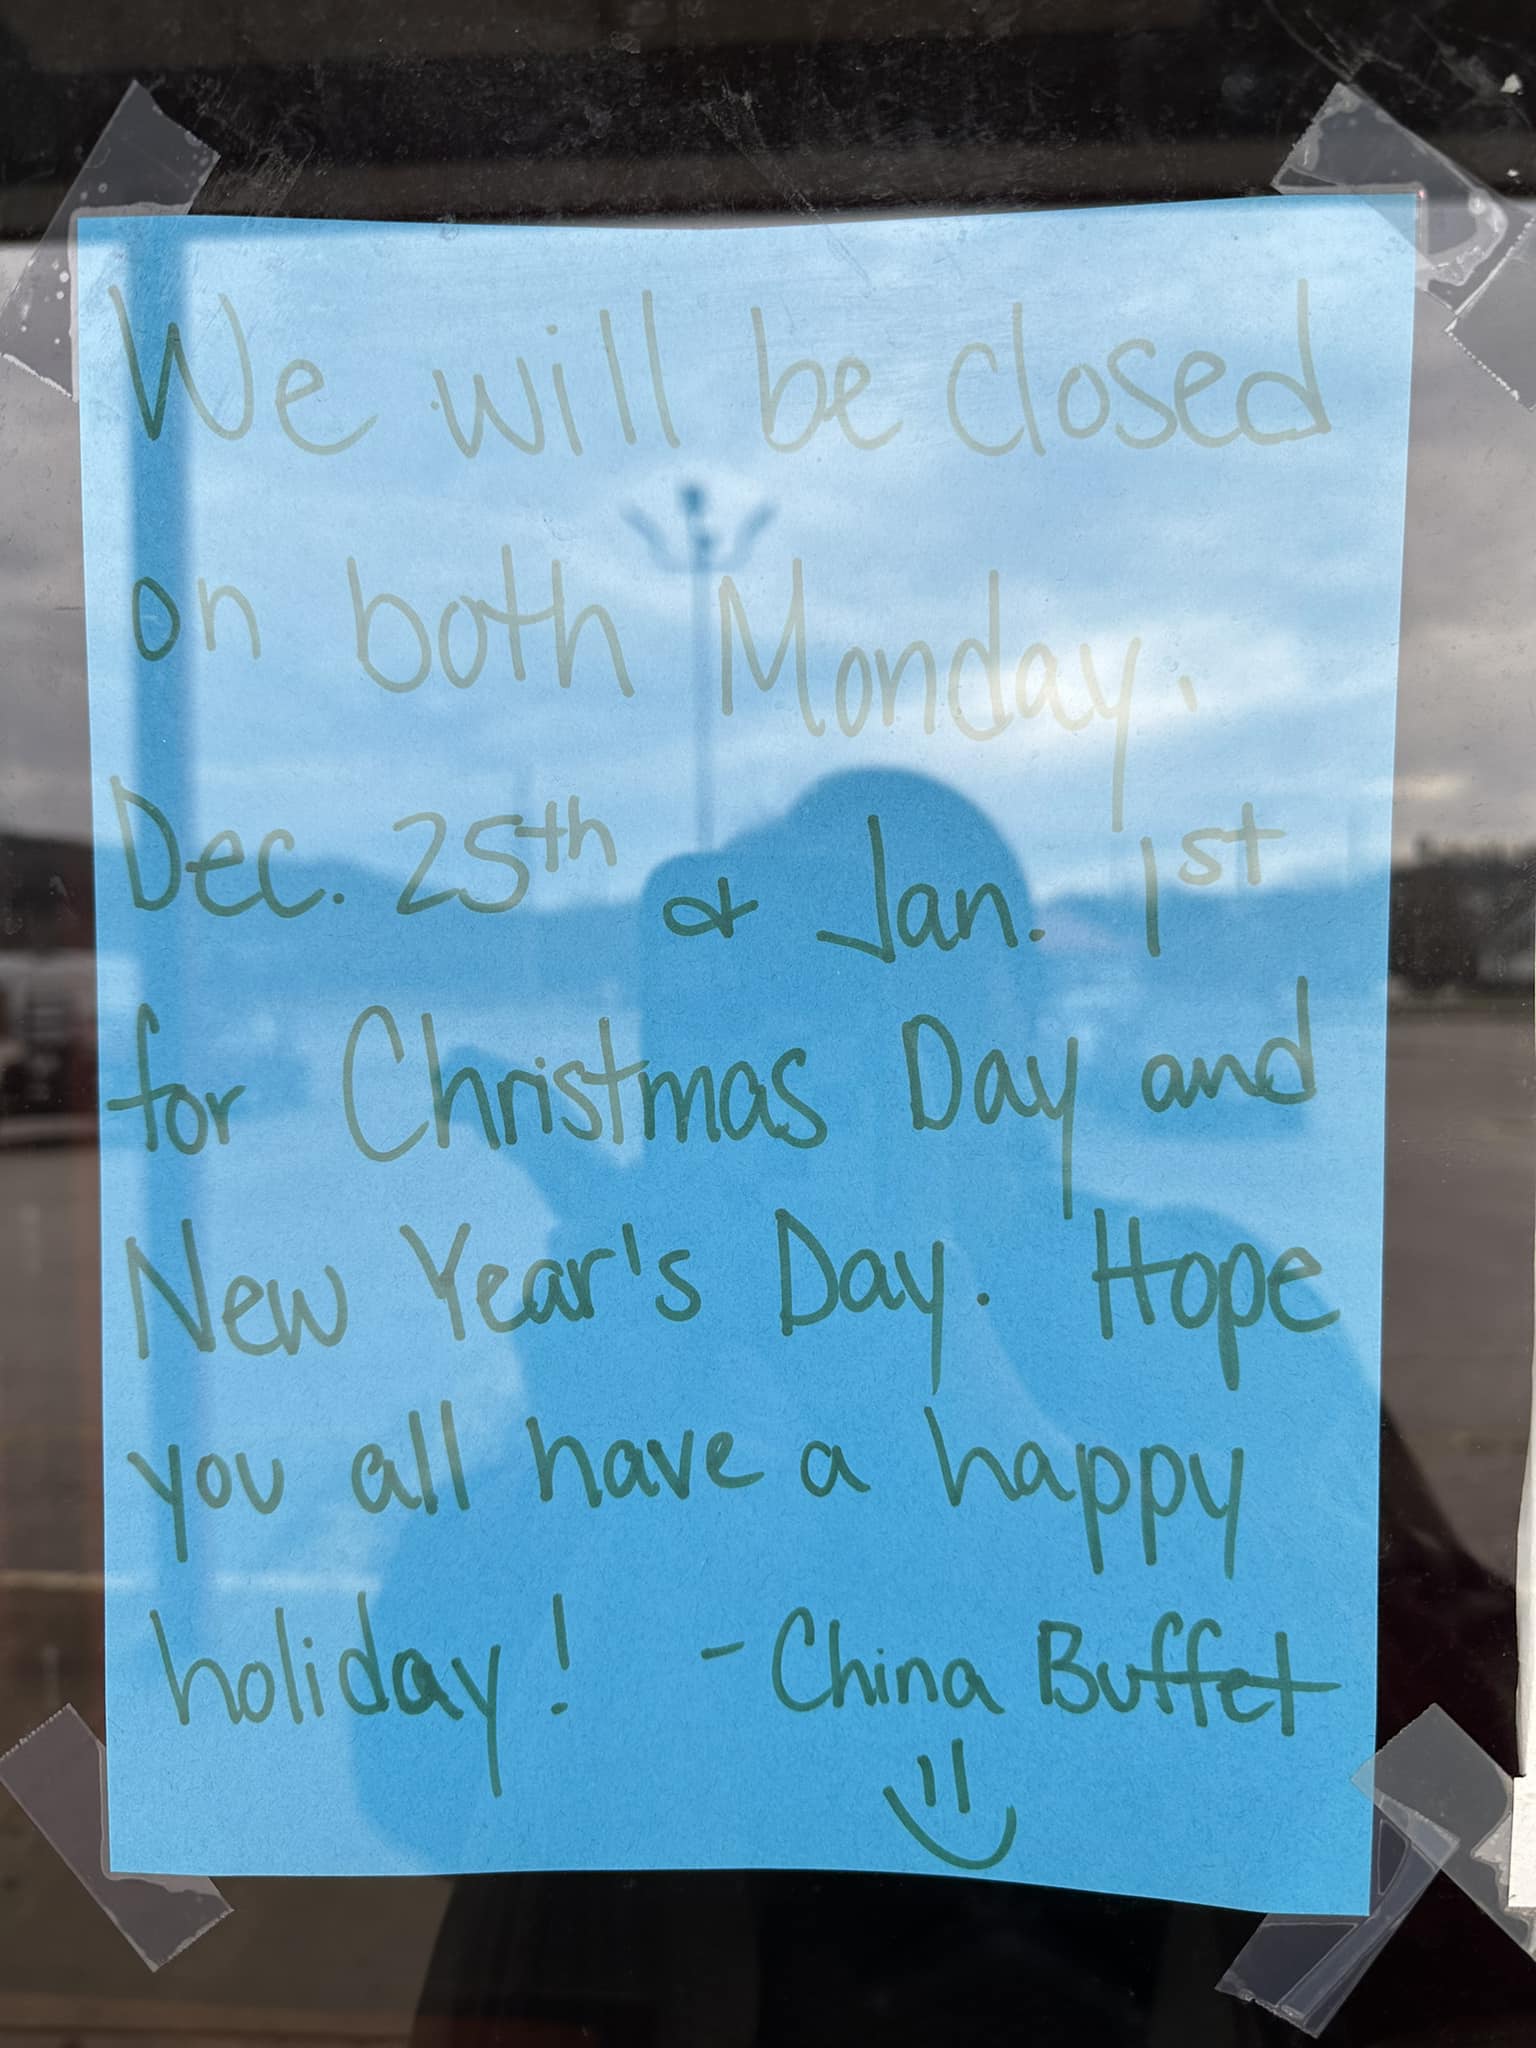 We will be closed
on both Monday,
Dec. 25th & Jan. 1st
for Christmas Day and
New Year's Day. Hope
you all have a happy
holiday! - China Buffet